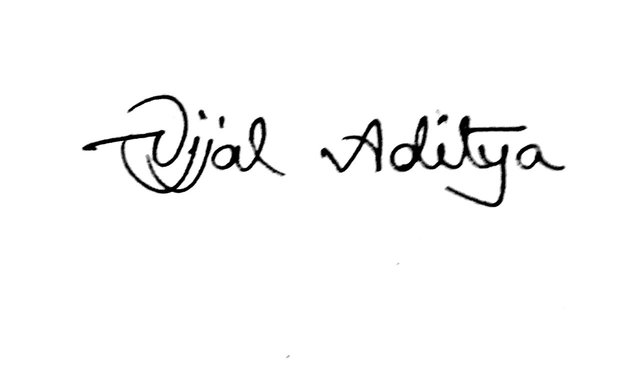 Ujjal Aditya